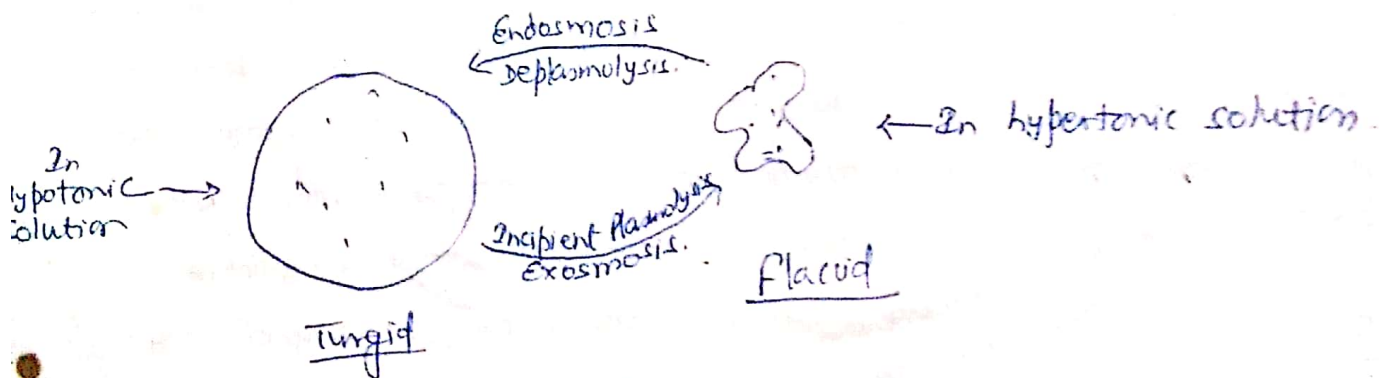 Endosmosis
Deplasmolysis.
In
ypotonic
olution
← In hypertonic solution.
Incipient Plasmolysis
Exosmosis.
Flaccid
Turgid